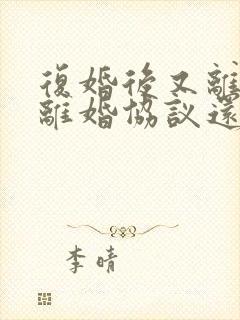 復婚後又離
離婚協議還
李晴